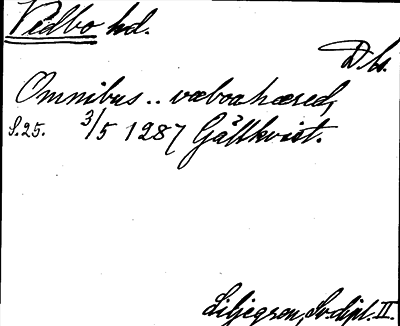 Vedbo hd.
D. bs.
Omnibus .. vaboahæred,
S. 25. 3/5 1287 Gällkvist.
Liljegren, Sv. dipl. II.